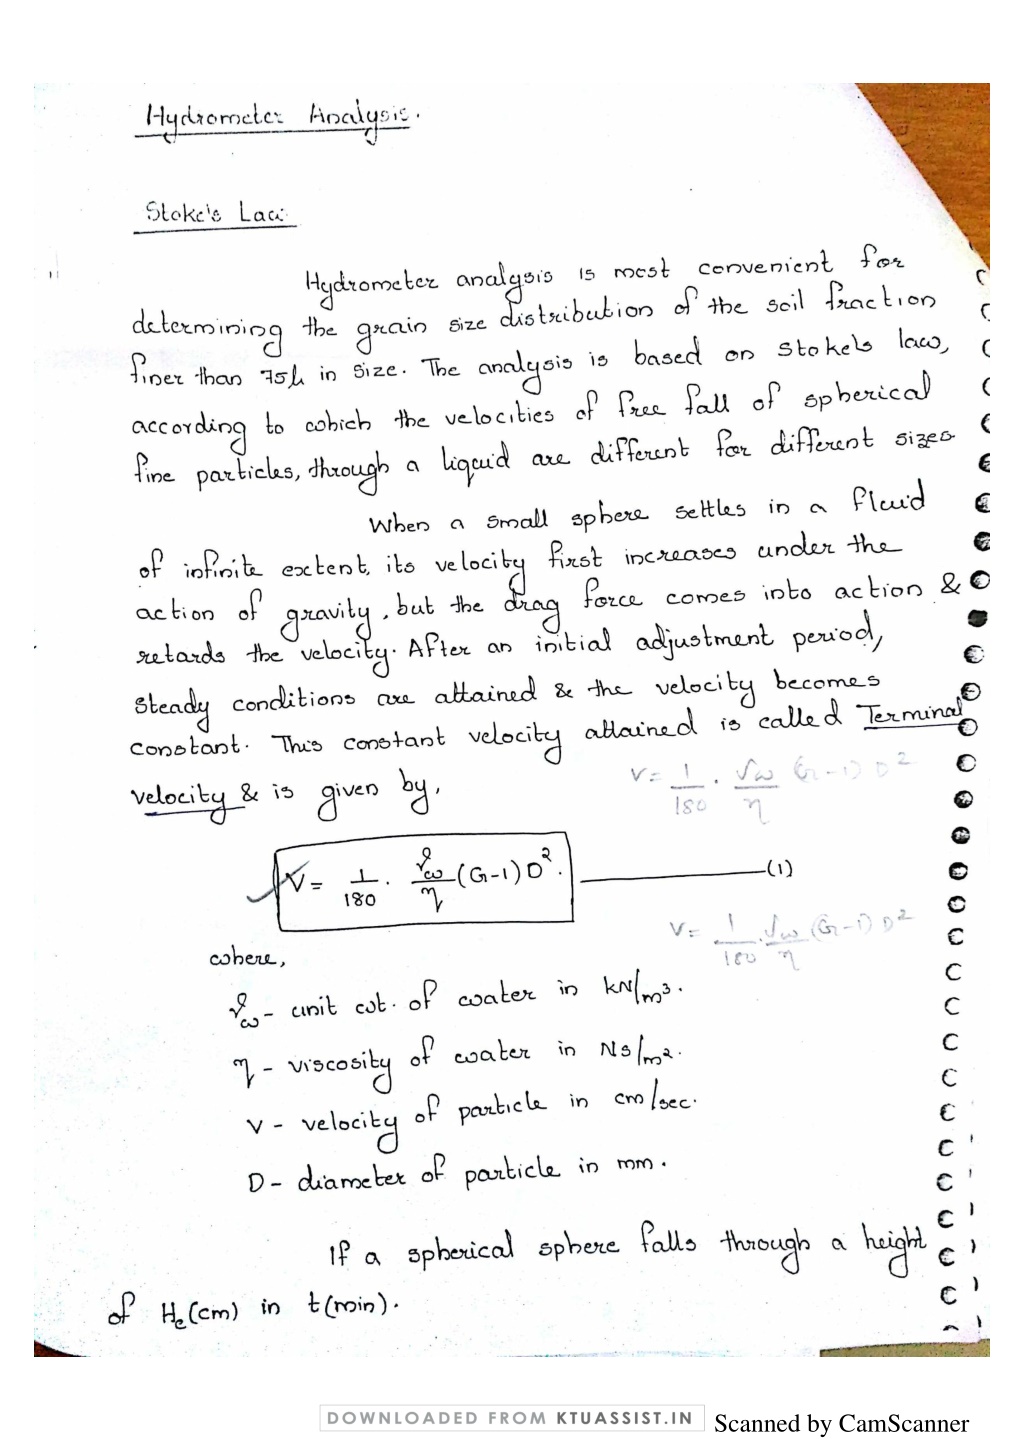 Hydrometer Analysis.
Stoke's Law
Hydrometer analysis is most convenient for
determining the grain size distribution of the soil fraction
finer than 75μ in size. The analysis is based on stoke's law,
according to which the velocities of free fall of spherical
fine particles, through a liquid are different for different sizes
When a small sphere settles in a fluid
of infinite extent, its velocity first increases under the
action of gravity, but the drag force comes into action &
retards the velocity. After an initial adjustment period,
steady conditions are attained & the velocity becomes
constant. This constant velocity attained is called Terminal
velocity & is given by,
V = 1/180 . γω/η (G-1) D²
V = 1/180 . γω/η (G-1) D². (1)
V = 1/180 . γω/η (G-1) D²
where,
γω - unit wt. of water in kN/m³.
η - viscosity of water in Ns/m².
V - velocity of particle in cm/sec.
D - diameter of particle in mm.
If a spherical sphere falls through a height
of He(cm) in t(min).
DOWNLOADED FROM KTUASSIST.IN
Scanned by CamScanner